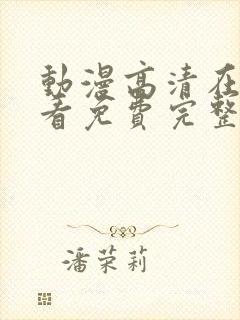 動漫高清在
看免費完整
潘荣莉